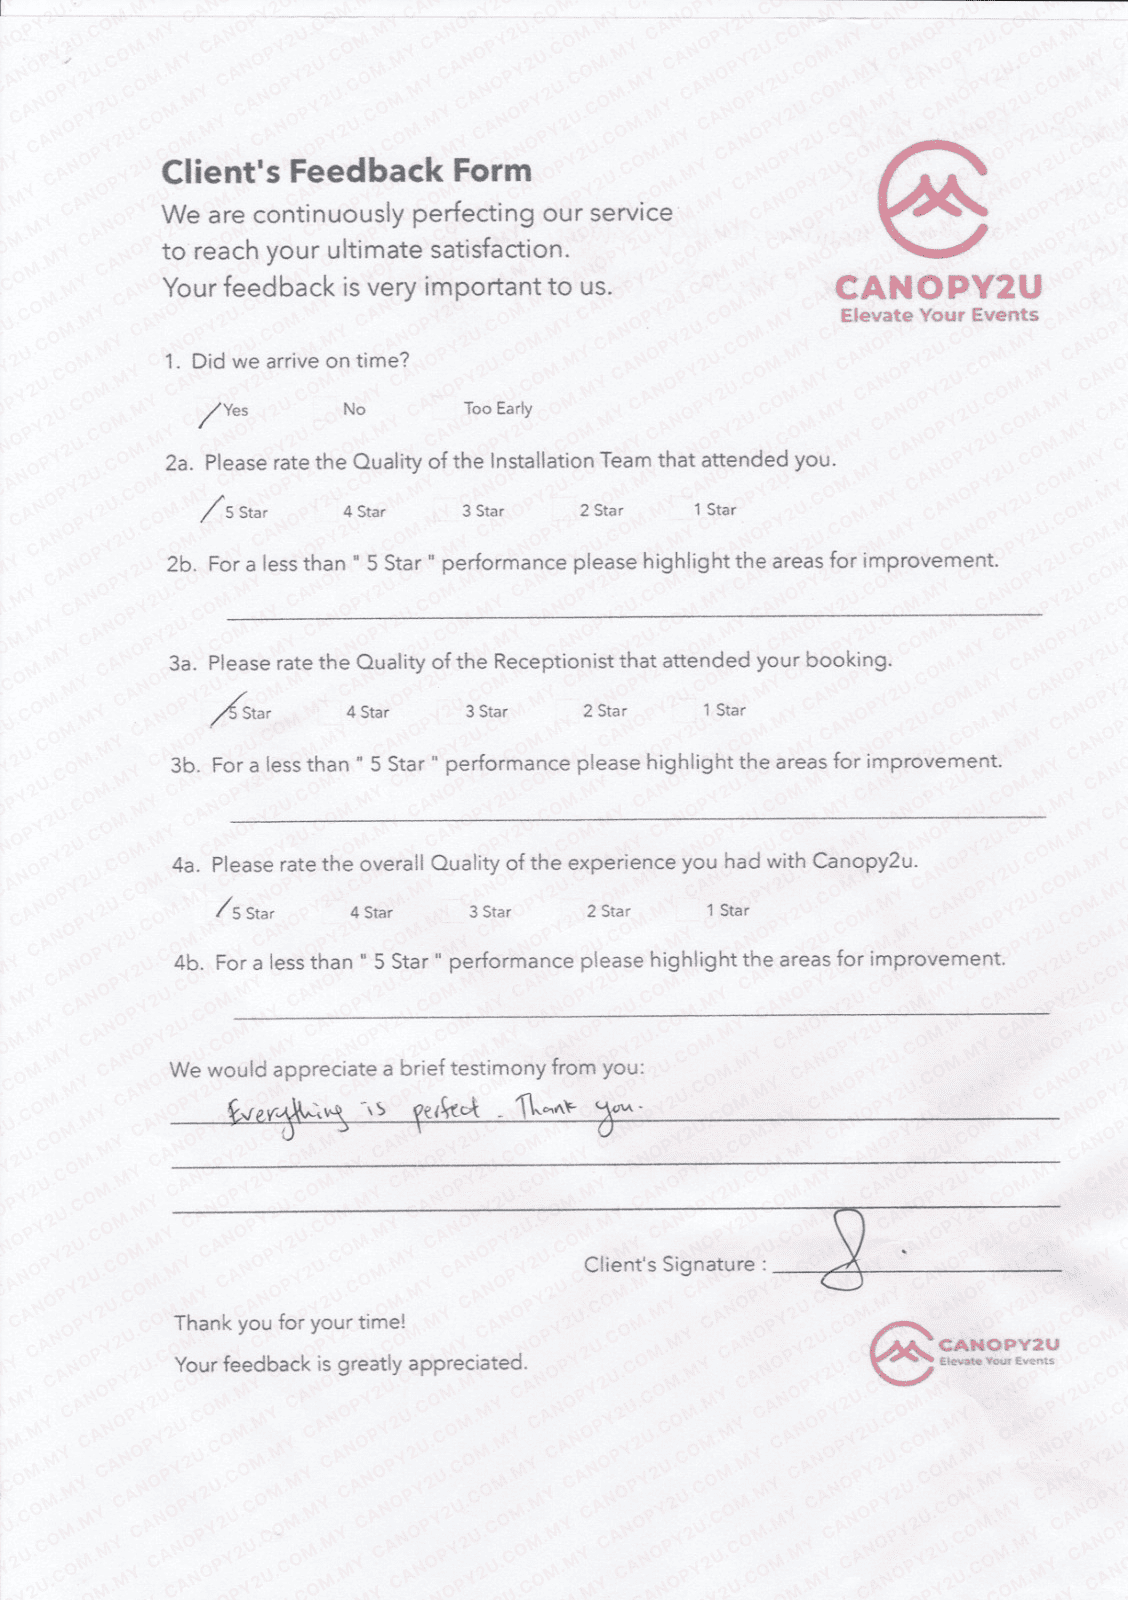 Client's Feedback Form
We are continuously perfecting our service
to reach your ultimate satisfaction.
Your feedback is very important to us.
CANOPY2U
Elevate Your Events
1. Did we arrive on time?
Yes No Too Early
2a. Please rate the Quality of the Installation Team that attended you.
5 Star 4 Star 3 Star 2 Star 1 Star
2b. For a less than " 5 Star " performance please highlight the areas for improvement.
3a. Please rate the Quality of the Receptionist that attended your booking.
5 Star 4 Star 3 Star 2 Star 1 Star
3b. For a less than " 5 Star " performance please highlight the areas for improvement.
4a. Please rate the overall Quality of the experience you had with Canopy2u.
5 Star 4 Star 3 Star 2 Star 1 Star
4b. For a less than " 5 Star " performance please highlight the areas for improvement.
We would appreciate a brief testimony from you:
Everything is perfect. Thank you.
Client's Signature :
Thank you for your time!
Your feedback is greatly appreciated.
CANOPY2U
Elevate Your Events
CANOPY2U.COM.MY